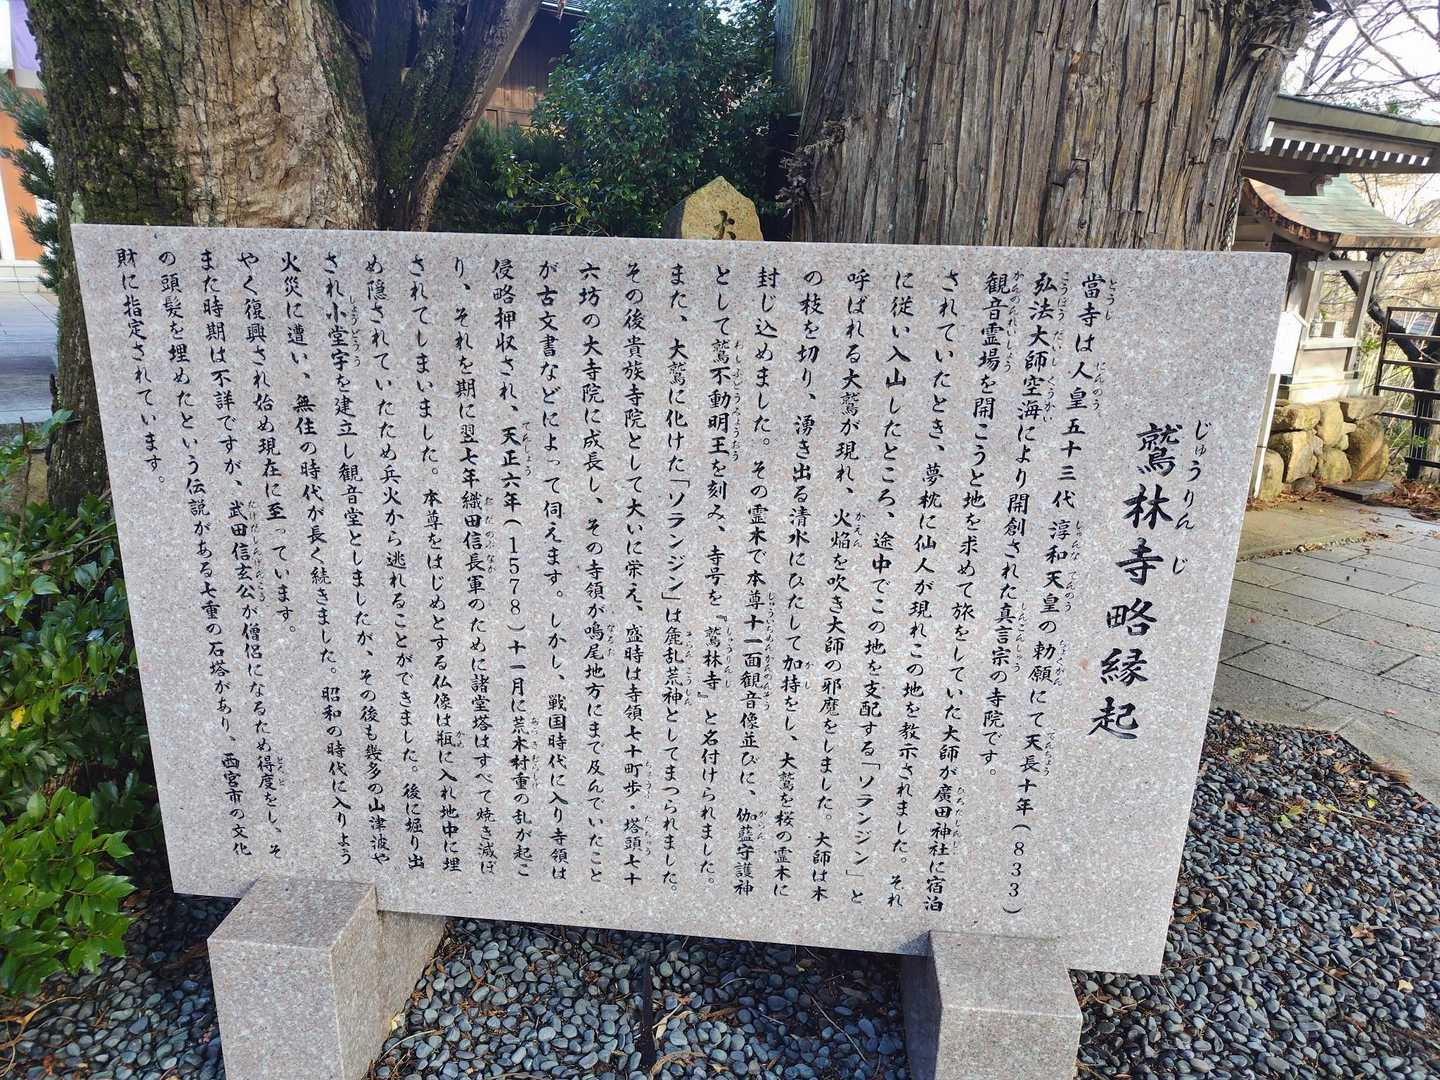 鷲林寺略縁起
じゅうりんじ
當寺は人皇五十三代 淳和天皇の勅願にて天長十年(833)
弘法大師空海により開創された真言宗の寺院です。
観音霊場を開こうと地を求めて旅をしていた大師が廣田神社に宿泊
されていたとき、夢枕に仙人が現れこの地を教示されました。それ
に従い入山したところ、途中でこの地を支配する「ソランジン」と
呼ばれる大鷲が現れ、火焔を吹き大師の邪魔をしました。大師は木
の枝を切り、湧き出る清水にひたして加持をし、大鷲を桜の霊木に
封じ込めました。その霊木で本尊十一面観音像並びに、伽藍守護神
として鷲不動明王を刻み、寺号を『鷲林寺』と名付けられました。
また、大鷲に化けた「ソランジン」は麁乱荒神としてまつられました。
その後貴族寺院として大いに栄え、盛時は寺領七十町歩・塔頭七十
六坊の大寺院に成長し、その寺領が鳴尾地方にまで及んでいたこと
が古文書などによって伺えます。しかし、戦国時代に入り寺領は
侵略押収され、天正六年(1578)十一月に荒木村重の乱が起こ
り、それを期に翌七年織田信長軍のために諸堂塔はすべて焼き滅ぼ
されてしまいました。本尊をはじめとする仏像は瓶に入れ地中に埋
め隠されていたため兵火から逃れることができました。後に堀り出
され小堂宇を建立し観音堂としましたが、その後も幾多の山津波や
火災に遭い、無住の時代が長く続きました。昭和の時代に入りよう
やく復興され始め現在に至っています。
また時期は不詳ですが、武田信玄公が僧侶になるため得度をし、そ
の頭髪を埋めたという伝説がある七重の石塔があり、西宮市の文化
財に指定されています。